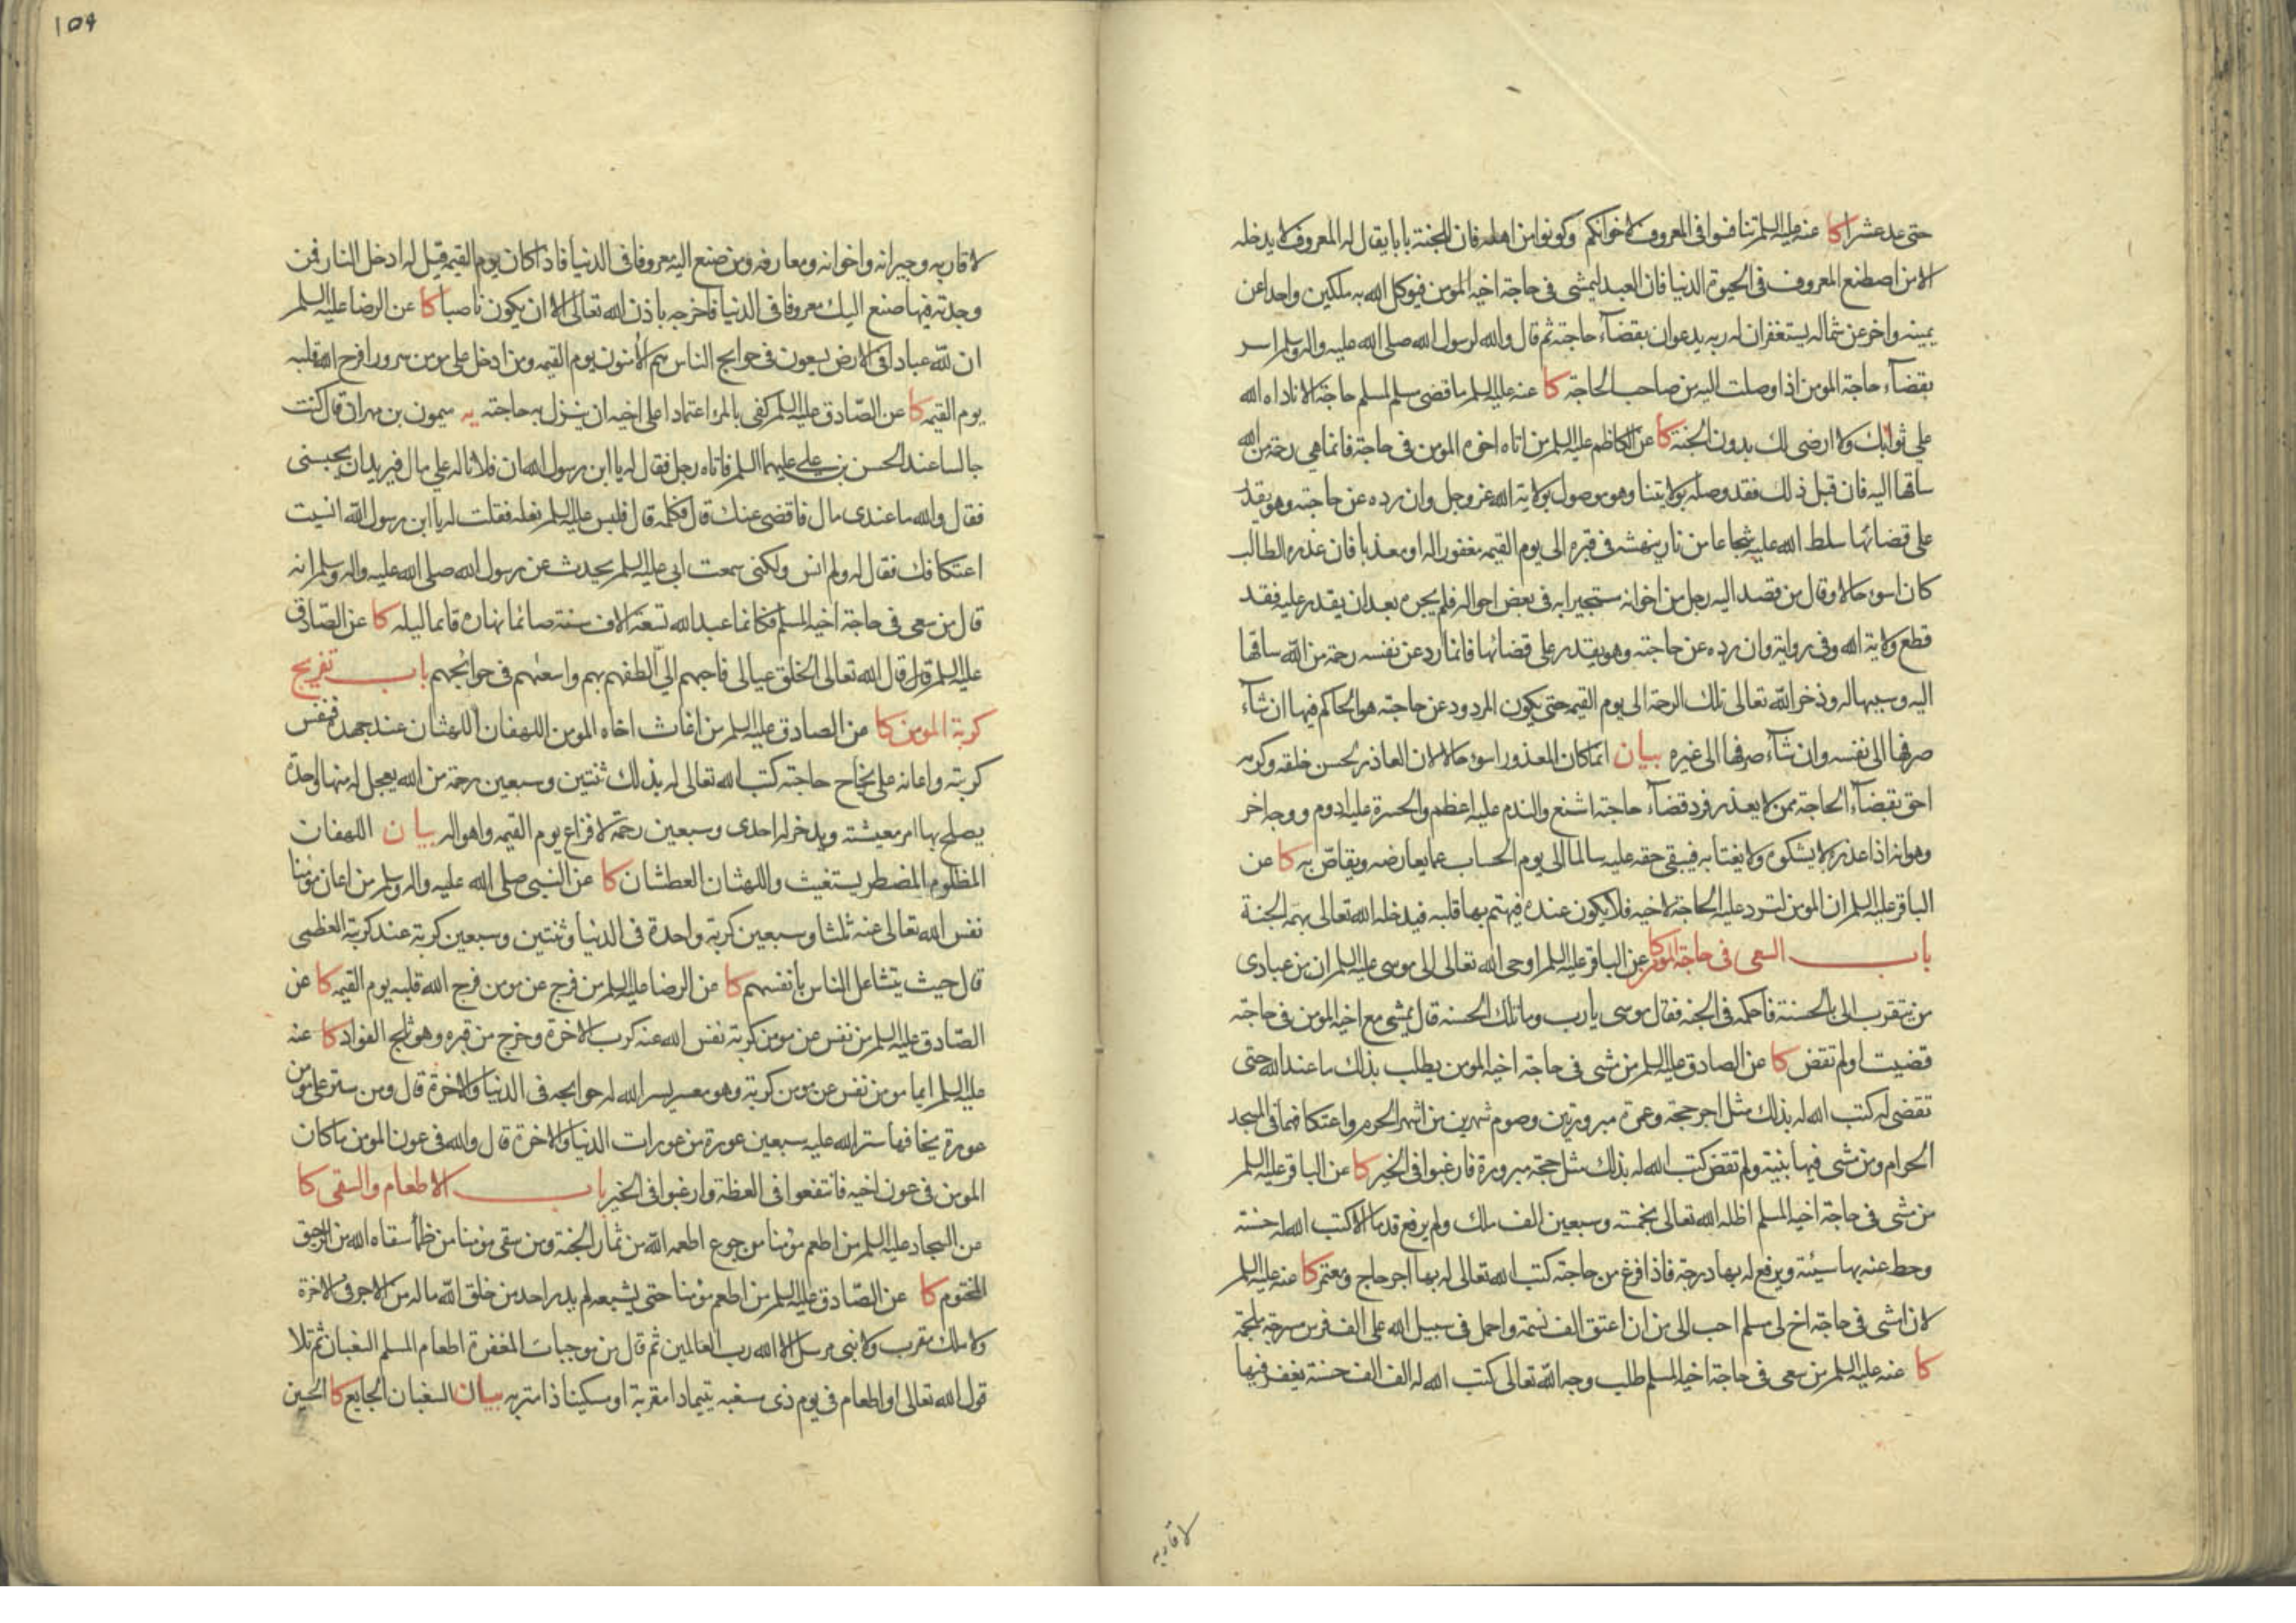 حتى عد عشرا كا عنه عليه السلم تنافسوا فى المعروف لاخوانكم وكونوا من اهله فان للجنة بابا يقال له المعروف لا يدخله
الا من اصطنع المعروف فى الحيوة الدنيا فان العبد ليمشى فى حاجة اخيه المومن فيوكل الله به ملكين واحدا عن
يمينه واخر عن شماله يستغفران له ربه يدعوان بقضآء حاجته ثم قال والله لرسول الله صلى الله عليه واله وسلم اسر
بقضآء حاجة المومن اذا وصلت اليه من صاحب الحاجة كا عنه عليه السلم ما قضى مسلم لمسلم حاجة الا ناداه الله
على ثوابك ولا ارضى لك بدون الجنة كا عن الكاظم عليه السلم من اتاه اخوه المومن فى حاجة فانما هى رحمة من الله
ساقها اليه فان قبل ذلك فقد وصله بولايتنا وهو موصول بولاية الله عز وجل وان رده عن حاجته وهو يقدر
على قضائها سلط الله عليه شجاعا من نار ينهشه فى قبره الى يوم القيمه مغفورا له او معذبا فان عذره الطالب
كان اسوء حالا وقال من قصد اليه رجل من اخوانه مستجيرا به فى بعض احواله فلم يجره بعد ان يقدر عليه فقد
قطع ولاية الله وفى رواية وان رده عن حاجته وهو يقدر على قضائها فانما رد عن نفسه رحمة من الله ساقها
اليه وسببها له وذخر الله تعالى تلك الرحمة الى يوم القيمه حتى يكون المردود عن حاجته هو الحاكم فيها ان شآء
صرفها الى نفسه وان شآء صرفها الى غيره بيان انما كان المعذور اسوء حالا لان العاذر لحسن خلقه وكرمه
احق بقضآء الحاجة ممن لا يعذر فرد قضآء حاجته اشنع والندم عليه اعظم والحسرة عليه ادوم ووجه اخر
وهو انه اذا عذره لا يشكوه ولا يغتابه فيبقى حقه عليه سالما الى يوم الحساب عما يعارضه ويقاص به كا عن
الباقر عليه السلم ان المومن لترد عليه الحاجة لاخيه فلا يكون عنده فيهتم بها قلبه فيدخله الله تعالى بهمه الجنة
باب السعى فى حاجة المومن كا عن الباقر عليه السلم اوحى الله تعالى الى موسى عليه السلم ان من عبادى
من يتقرب الى بالحسنة فاحكمه فى الجنه فقال موسى يا رب وما تلك الحسنه قال يمشى مع اخيه المومن فى حاجته
قضيت او لم تقض كا عن الصادق عليه السلم من مشى فى حاجة اخيه المومن يطلب بذلك ما عند الله حتى
تقضى له كتب الله له بذلك مثل اجر حجة وعمرة مبرورتين وصوم شهرين من اشهر الحرم واعتكافهما فى المسجد
الحرام ومن مشى فيها بنية ولم تقض كتب الله له بذلك مثل حجة مبرورة فارغبوا فى الخير كا عن الباقر عليه السلم
من مشى فى حاجة اخيه المسلم اظله الله تعالى بخمسة وسبعين الف ملك ولم يرفع قدما الا كتب الله له حسنة
وحط عنه بها سيئة ويرفع له بها درجة فاذا فرغ من حاجته كتب الله تعالى له بها اجر حاج ومعتمر كا عنه عليه السلم
لان امشى فى حاجة اخ لى مسلم احب الى من ان اعتق الف نسمة واحمل فى سبيل الله على الف فرس مسرجة ملجمة
كا عنه عليه السلم من سعى فى حاجة اخيه المسلم طلب وجه الله تعالى كتب الله له الف الف حسنة يغفر فيها
لاقاربه
١٥٤
لاقاربه وجيرانه واخوانه ومعارفه ومن صنع اليه معروفا فى الدنيا فاذا كان يوم القيمه قيل له ادخل النار فمن
وجدته فيها صنع اليك معروفا فى الدنيا فاخرجه باذن الله تعالى الا ان يكون ناصبا كا عن الرضا عليه السلم
ان لله عبادا فى الارض يسعون فى حوايج الناس هم الامنون يوم القيمه ومن ادخل على مومن سرورا فرح الله قلبه
يوم القيمه كا عن الصادق عليه السلم كفى بالمرء اعتمادا على اخيه ان ينزل به حاجته يه ميمون بن مهران قال كنت
جالسا عند الحسن بن على عليهما السلم فاتاه رجل فقال له يا ابن رسول الله ان فلانا له على مال فيريد ان يحبسنى
فقال والله ما عندى مال فاقضى عنك قال فكلمه قال فلبس عليه السلم نعله فقلت له يا ابن رسول الله انسيت
اعتكافك فقال له ولم انس ولكنى سمعت ابى عليه السلم يحدث عن رسول الله صلى الله عليه واله وسلم انه
قال من سعى فى حاجة اخيه المسلم فكانما عبد الله تسعة الاف سنة صائما نهاره قائما ليله كا عن الصادق
عليه السلم قال قال الله تعالى الخلق عيالى فاحبهم الىّ الطفهم بهم واسعهم فى حوائجهم باب تفريج
كربة المومن كا عن الصادق عليه السلم من اغاث اخاه المومن اللهفان اللهثان عند جهده فنفس
كربته واعانه على نجاح حاجته كتب الله تعالى له بذلك ثنتين وسبعين رحمة من الله يعجل له منها واحدة
يصلح بها امر معيشته ويدخر له احدى وسبعين رحمة لافزاع يوم القيمه واهواله بيان اللهفان
المظلوم المضطر يستغيث واللهثان العطشان كا عن النبى صلى الله عليه واله وسلم من اعان مومنا
نفس الله تعالى عنه ثلثا وسبعين كربة واحدة فى الدنيا وثنتين وسبعين كربة عند كربة العظمى
قال حيث يتشاغل الناس بانفسهم كا عن الرضا عليه السلم من فرج عن مومن فرج الله قلبه يوم القيمه كا عن
الصادق عليه السلم من نفس عن مومن كربة نفس الله عنه كرب الاخرة وخرج من قبره وهو ثلج الفواد كا عنه
عليه السلم ايما مومن نفس عن مومن كربة وهو معسر يسر الله له حوايجه فى الدنيا والاخرة قال ومن ستر على مومن
عورة يخافها ستر الله عليه سبعين عورة من عورات الدنيا والاخرة قال والله فى عون المومن ما كان
المومن فى عون اخيه فانتفعوا فى العظة وارغبوا فى الخير باب الاطعام والسقى كا
عن السجاد عليه السلم من اطعم مومنا من جوع اطعمه الله من ثمار الجنة ومن سقى مومنا من ظمأ سقاه الله من الرحيق
المختوم كا عن الصادق عليه السلم من اطعم مومنا حتى يشبعه لم يدر احد من خلق الله ما له من الاجر فى الاخرة
ولا ملك مقرب ولا نبى مرسل الا الله رب العالمين ثم قال من موجبات المغفرة اطعام المسلم السغبان ثم تلا
قول الله تعالى او اطعام فى يوم ذى مسغبه يتيما ذا مقربة او مسكينا ذا متربه بيان السغبان الجايع كا الحسين